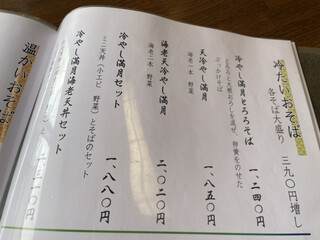 冷たいおそば
各そば大盛り 三九〇円増し
冷やし満月とろろそば 一、二四〇円
とろろと大根おろしを混ぜ、卵黄をのせた
ぶっかけそば
天冷やし満月 一、八五〇円
海老一本 野菜
海老天冷やし満月 二、〇二〇円
海老二本 野菜
冷やし満月セット 一、八八〇円
ミニ天丼(小エビ 野菜)とそばのセット
冷やし満月海老天丼セット
温かいおそば